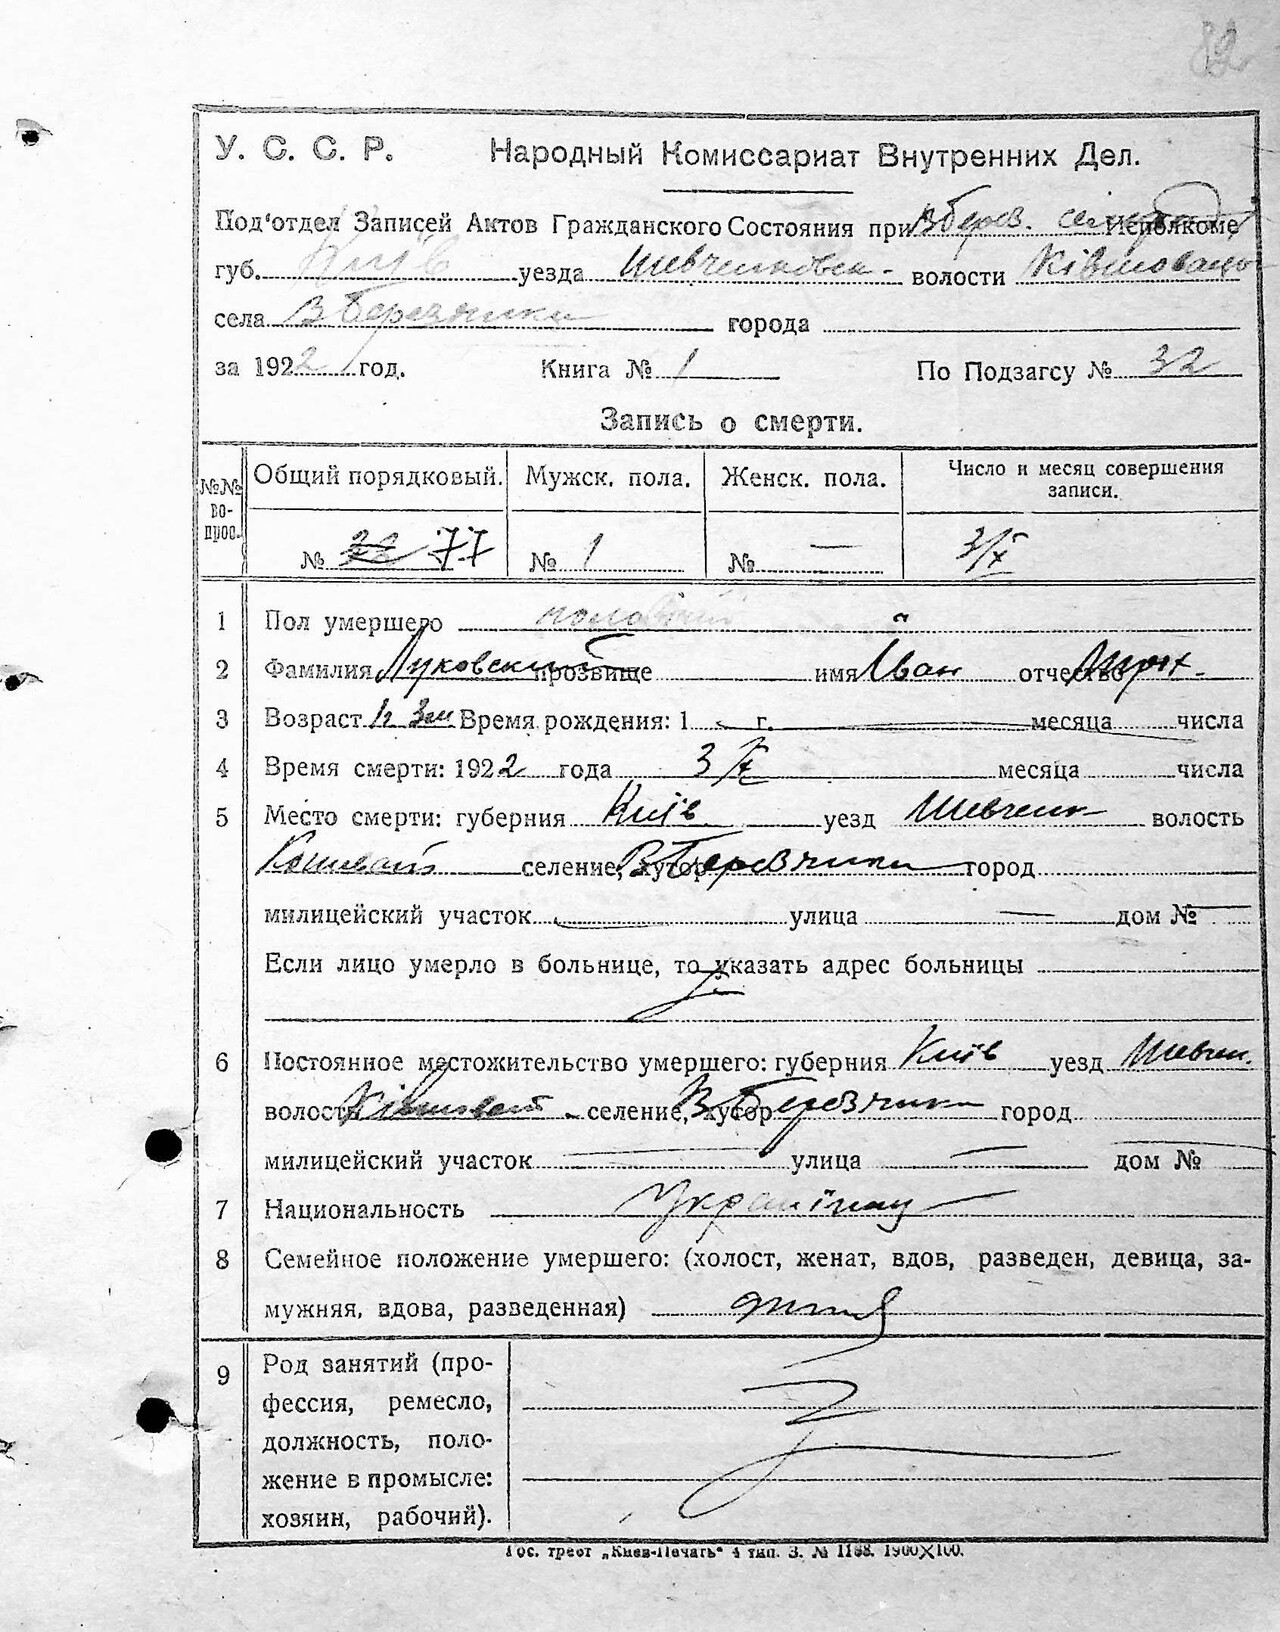 82
У. С. С. Р. Народный Комиссариат Внутренних Дел.
Под'отдел Записей Актов Гражданского Состояния при Вберез. Исполкоме
губ. Київ уезда Шевченковск- волости
села ВБерезянки города
за 1922 год. Книга № 1 По Подзагсу № 32
Запись о смерти.
№№ вопрос. Общий порядковый. Мужск. пола. Женск. пола. Число и месяц совершения записи.
№ 32 77 № 1 № — 3/X
1 Пол умершего
2 Фамилия Луковский прозвище имя Іван отчество
3 Возраст Время рождения: 1 г. месяца числа
4 Время смерти: 1922 года 3/X месяца числа
5 Место смерти: губерния Київ уезд Шевченк волость
селение, хутор город
милицейский участок улица — дом № —
Если лицо умерло в больнице, то указать адрес больницы
6 Постоянное местожительство умершего: губерния Київ уезд Шевчен.
волость селение, хутор город
милицейский участок — улица — дом № —
7 Национальность Українец
8 Семейное положение умершего: (холост, женат, вдов, разведен, девица, за-
мужняя, вдова, разведенная)
9 Род занятий (про-
фессия, ремесло,
должность, поло-
жение в промысле:
хозяин, рабочий).
Гос. трест „Киев-Печать" 4 тип. З. № 1168. 1900X100.